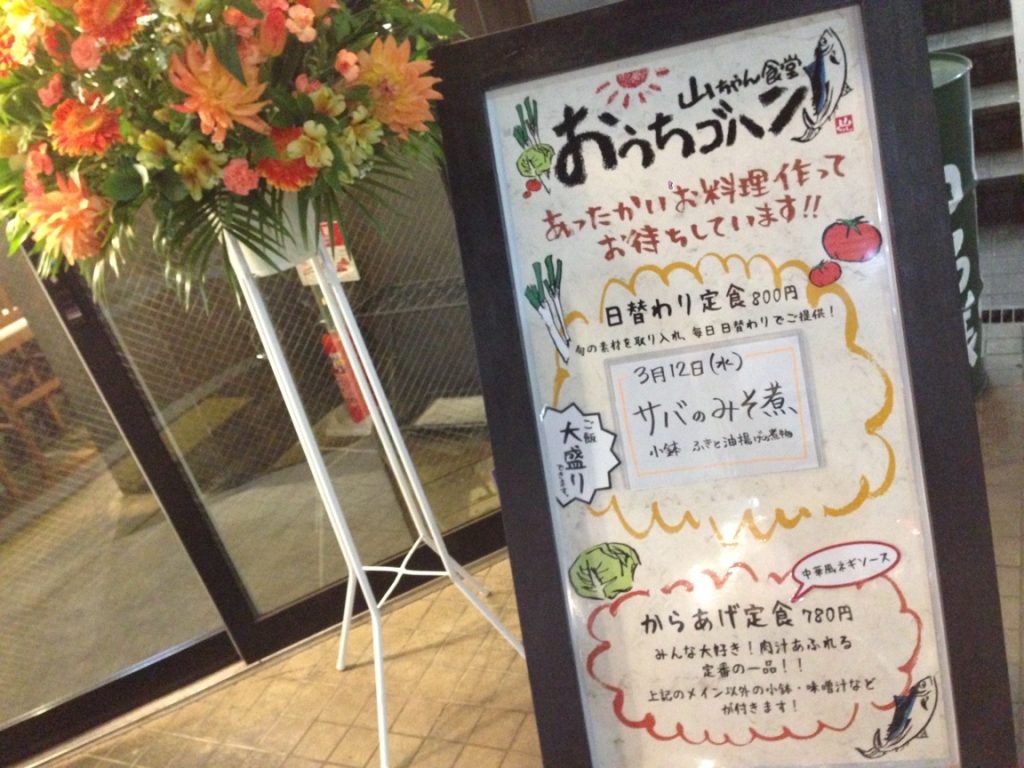 山ちゃん食堂
おうちゴハン
あったかいお料理作って
お待ちしています!!
日替わり定食 800円
旬の素材を取り入れ、毎日日替わりでご提供！
3月12日(水)
サバのみそ煮
小鉢 ふきと油揚げの煮物
ご飯
大盛り
できます。
中華風ネギソース
からあげ定食 780円
みんな大好き！肉汁あふれる
定番の一品！！
上記のメイン以外の小鉢・味噌汁など
が付きます！